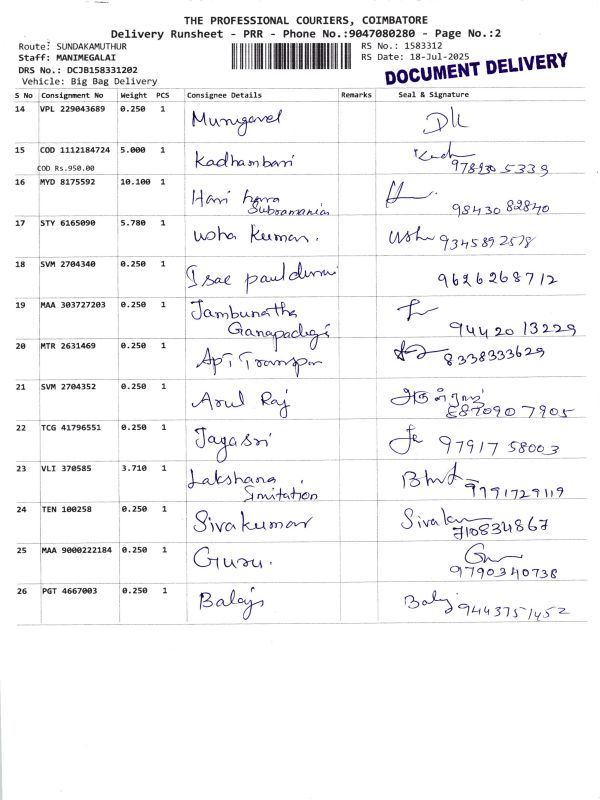 THE PROFESSIONAL COURIERS, COIMBATORE
Delivery Runsheet - PRR - Phone No.:9047080280 - Page No.:2
Route: SUNDAKAMUTHUR RS No.: 1583312
Staff: MANIMEGALAI RS Date: 18-Jul-2025
DOCUMENT DELIVERY
DRS No.: DCJB158331202
Vehicle: Big Bag Delivery
S No Consignment No Weight PCS Consignee Details Remarks Seal & Signature
14 VPL 229043689 0.250 1 Murugavel
15 COD 1112184724 5.000 1 Kadhambari
COD Rs.950.00
16 MYD 8175592 10.100 1 Hari hara
Subramanian 98430 82840
17 STY 6165090 5.780 1 usha kumar. usha 9345892578
18 SVM 2704340 0.250 1 Isac 9626268712
19 MAA 303727203 0.250 1 Jambunatha
94420 13229
20 MTR 2631469 0.250 1 APT 8338333629
21 SVM 2704352 0.250 1 Arul Raj
887090 7905
22 TCG 41796551 0.250 1 Jayasri 97917 58003
23 VLI 370585 3.710 1 Lakshana
Imitation 9791729119
24 TEN 100258 0.250 1 Sivakumar
710834867
25 MAA 9000222184 0.250 1 Guru.
9790340738
26 PGT 4667003 0.250 1 Balaji 9443751452